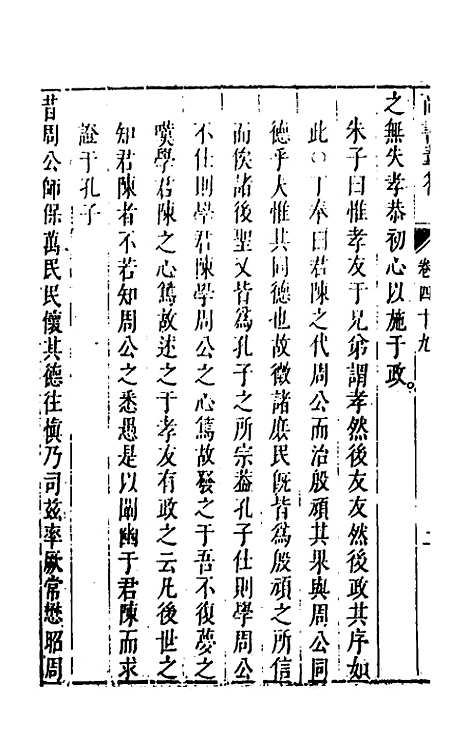 尚書 卷四十九 二
之無失孝恭初心以施于政。
朱子曰惟孝友于兄弟謂孝然後友友然後政其序如
此〇丁奉曰君陳之代周公而治殷頑其果與周公同
德乎夫惟其同德也故徵諸庶民既皆為殷頑之所信
而俟諸後聖又皆為孔子之所宗葢孔子仕則學周公
不仕則學君陳學周公之心篤故發之于吾不復夢之
嘆學君陳之心篤故述之于孝友有政之云凡後世之
知君陳者不若知周公之悉愚是以闡幽于君陳而求
證于孔子
昔周公師保萬民民懷其德往愼乃司兹率厥常懋昭周